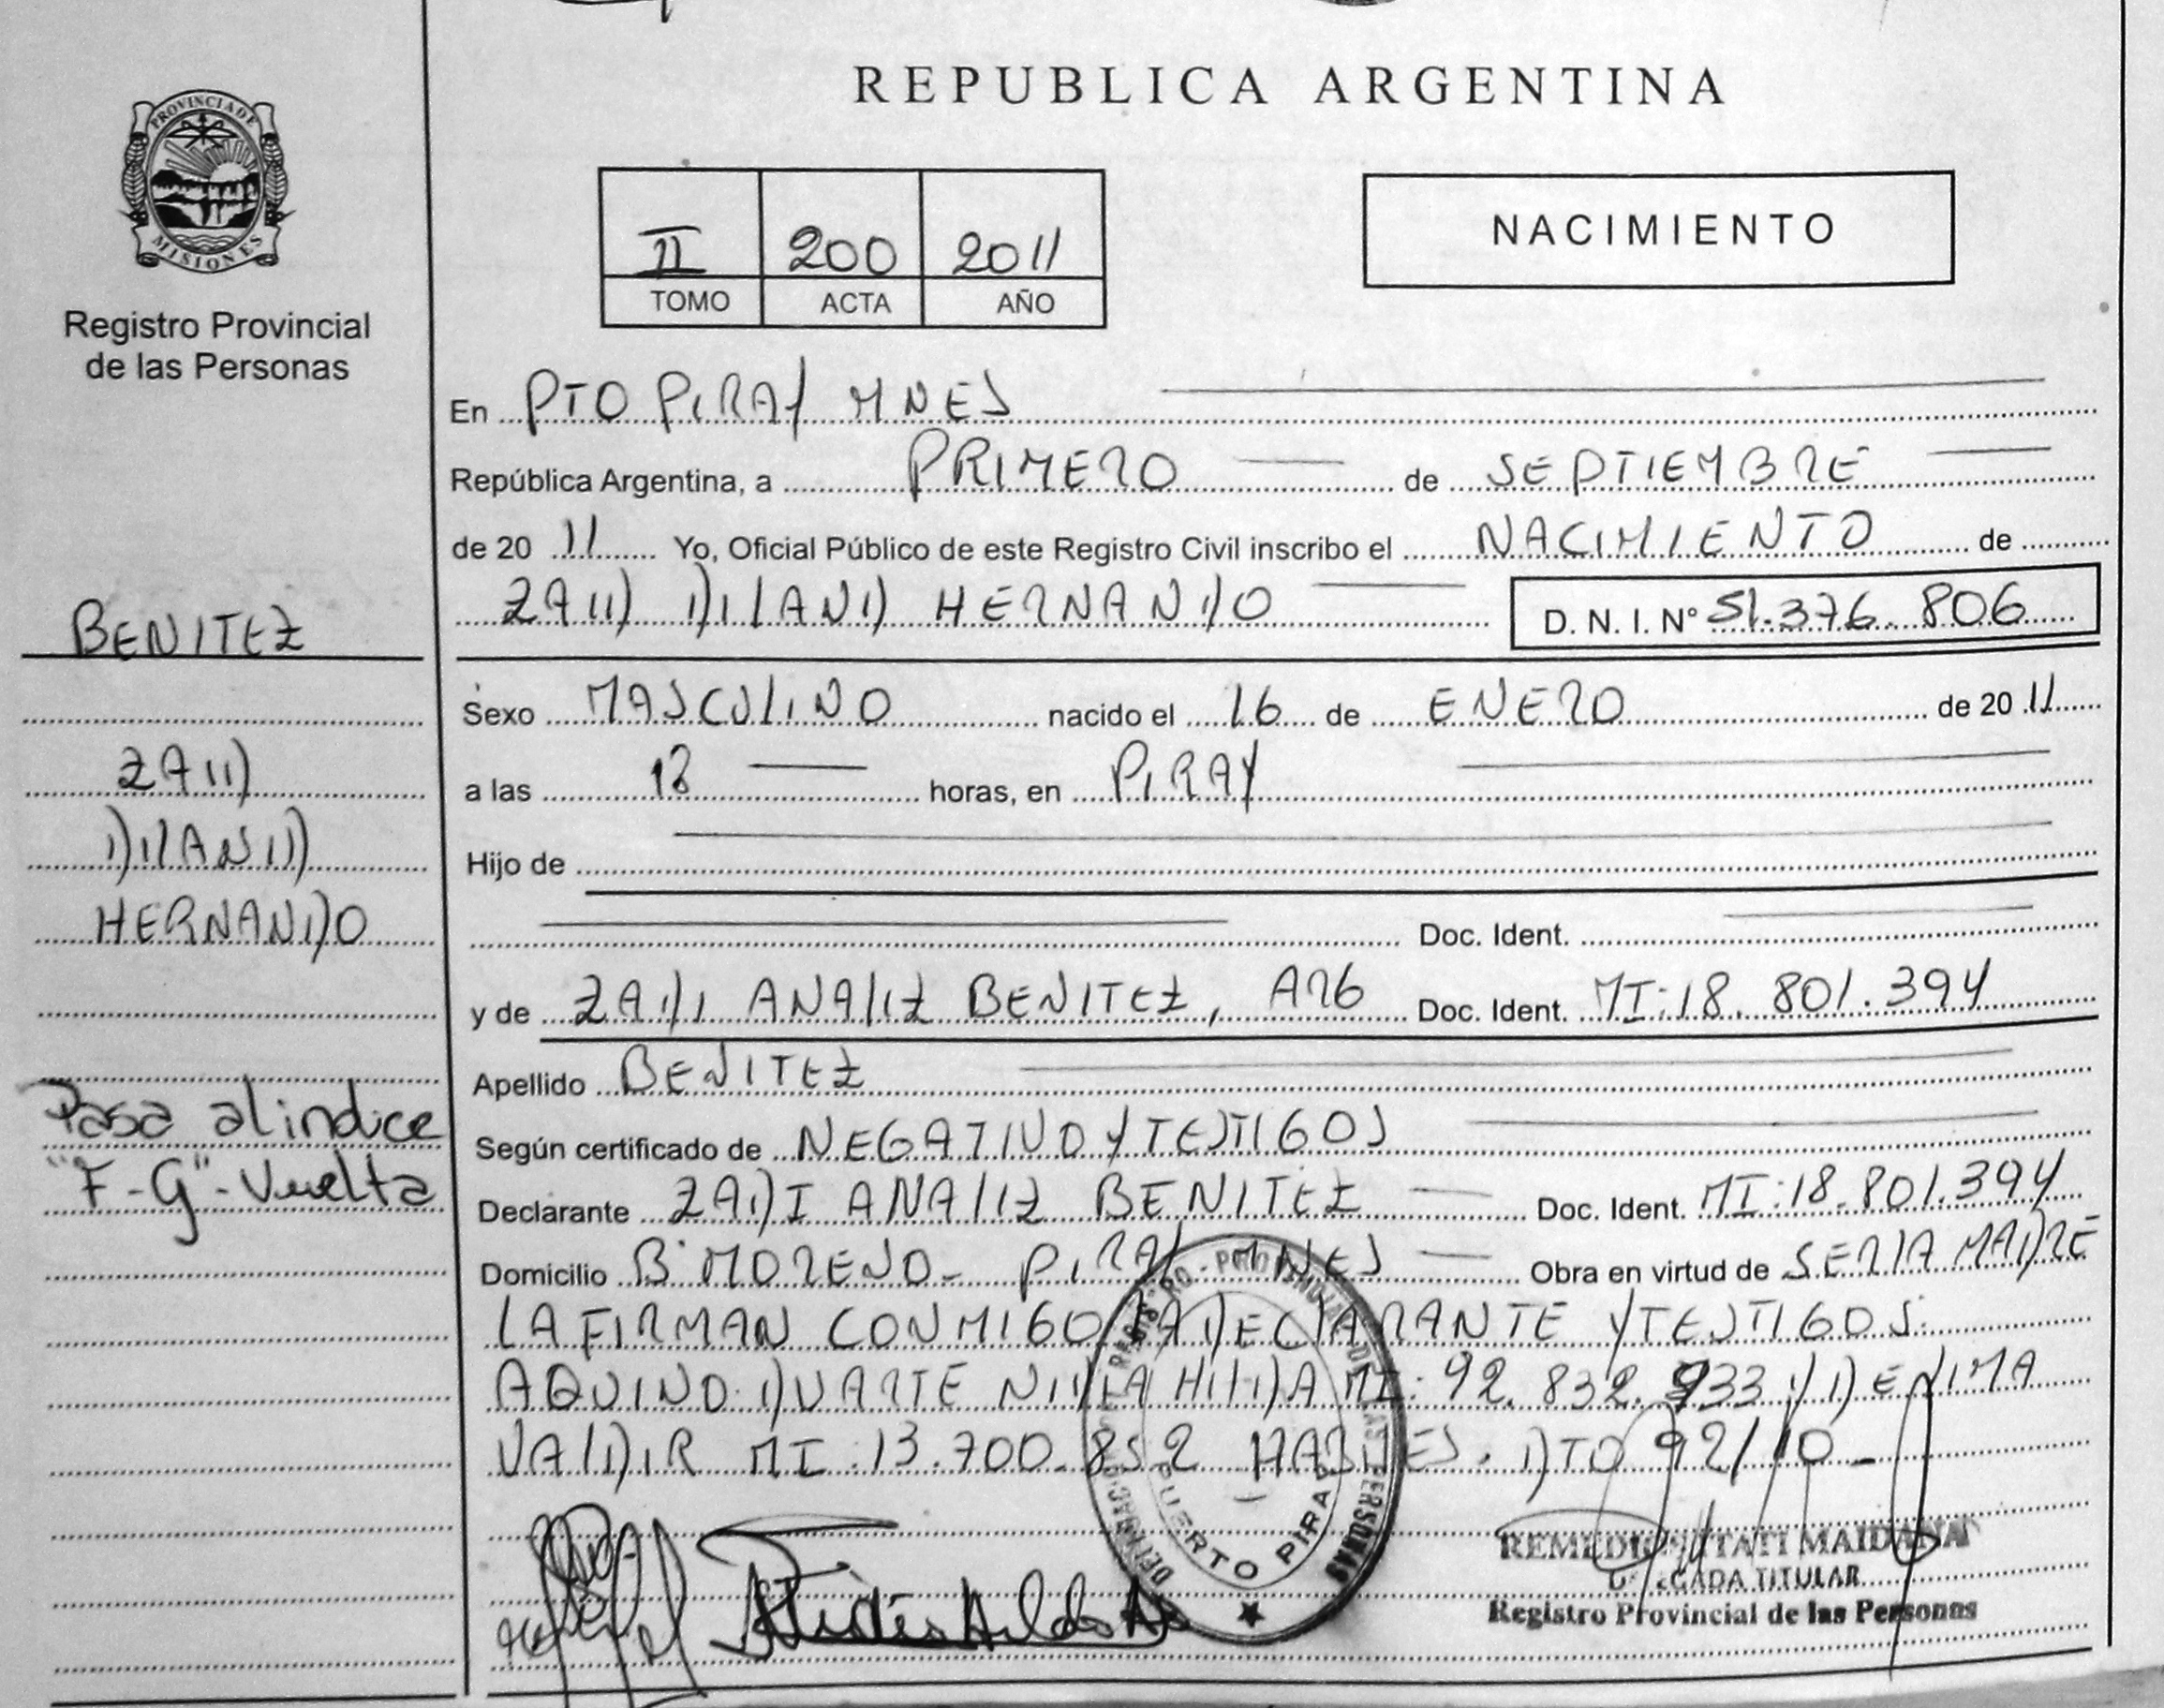 PROVINCIA DE
MISIONES
Registro Provincial
de las Personas
BENITEZ
ZAID
DILAND
HERNANDO
Pasa al indice
"F-G"-Vuelta
REPUBLICA ARGENTINA
II 200 2011
TOMO ACTA AÑO
NACIMIENTO
En PTO PIRAY MNES
República Argentina, a PRIMERO de SEPTIEMBRE
de 20 11 Yo, Oficial Público de este Registro Civil inscribo el NACIMIENTO de
ZAID DILAND HERNANDO D. N. I. N° 51.376.806
Sexo MASCULINO nacido el 16 de ENERO de 20 11
a las horas, en PIRAY
Hijo de
Doc. Ident.
y de ZAIDI ANALIZ BENITEZ, ARG Doc. Ident. MI:18.801.394
Apellido BENITEZ
Según certificado de NEGATIVO Y TESTIGOS
Declarante ZAIDI ANALIZ BENITEZ Doc. Ident. MI:18.801.394
Domicilio B° MORENO- PIRAY MNES Obra en virtud de SER LA MADRE
LA FIRMAN CONMIGO LA DECLARANTE Y TESTIGOS:
AQUINO DUARTE NILDA HILDA MI: 92.832.933 Y DE LIMA
VALDIR MI:13.700.852 HABILES. DTO 92/10-
PUERTO PIRAY
REMEDIOS TATI MAIDANA
DELEGADA TITULAR
Registro Provincial de las Personas